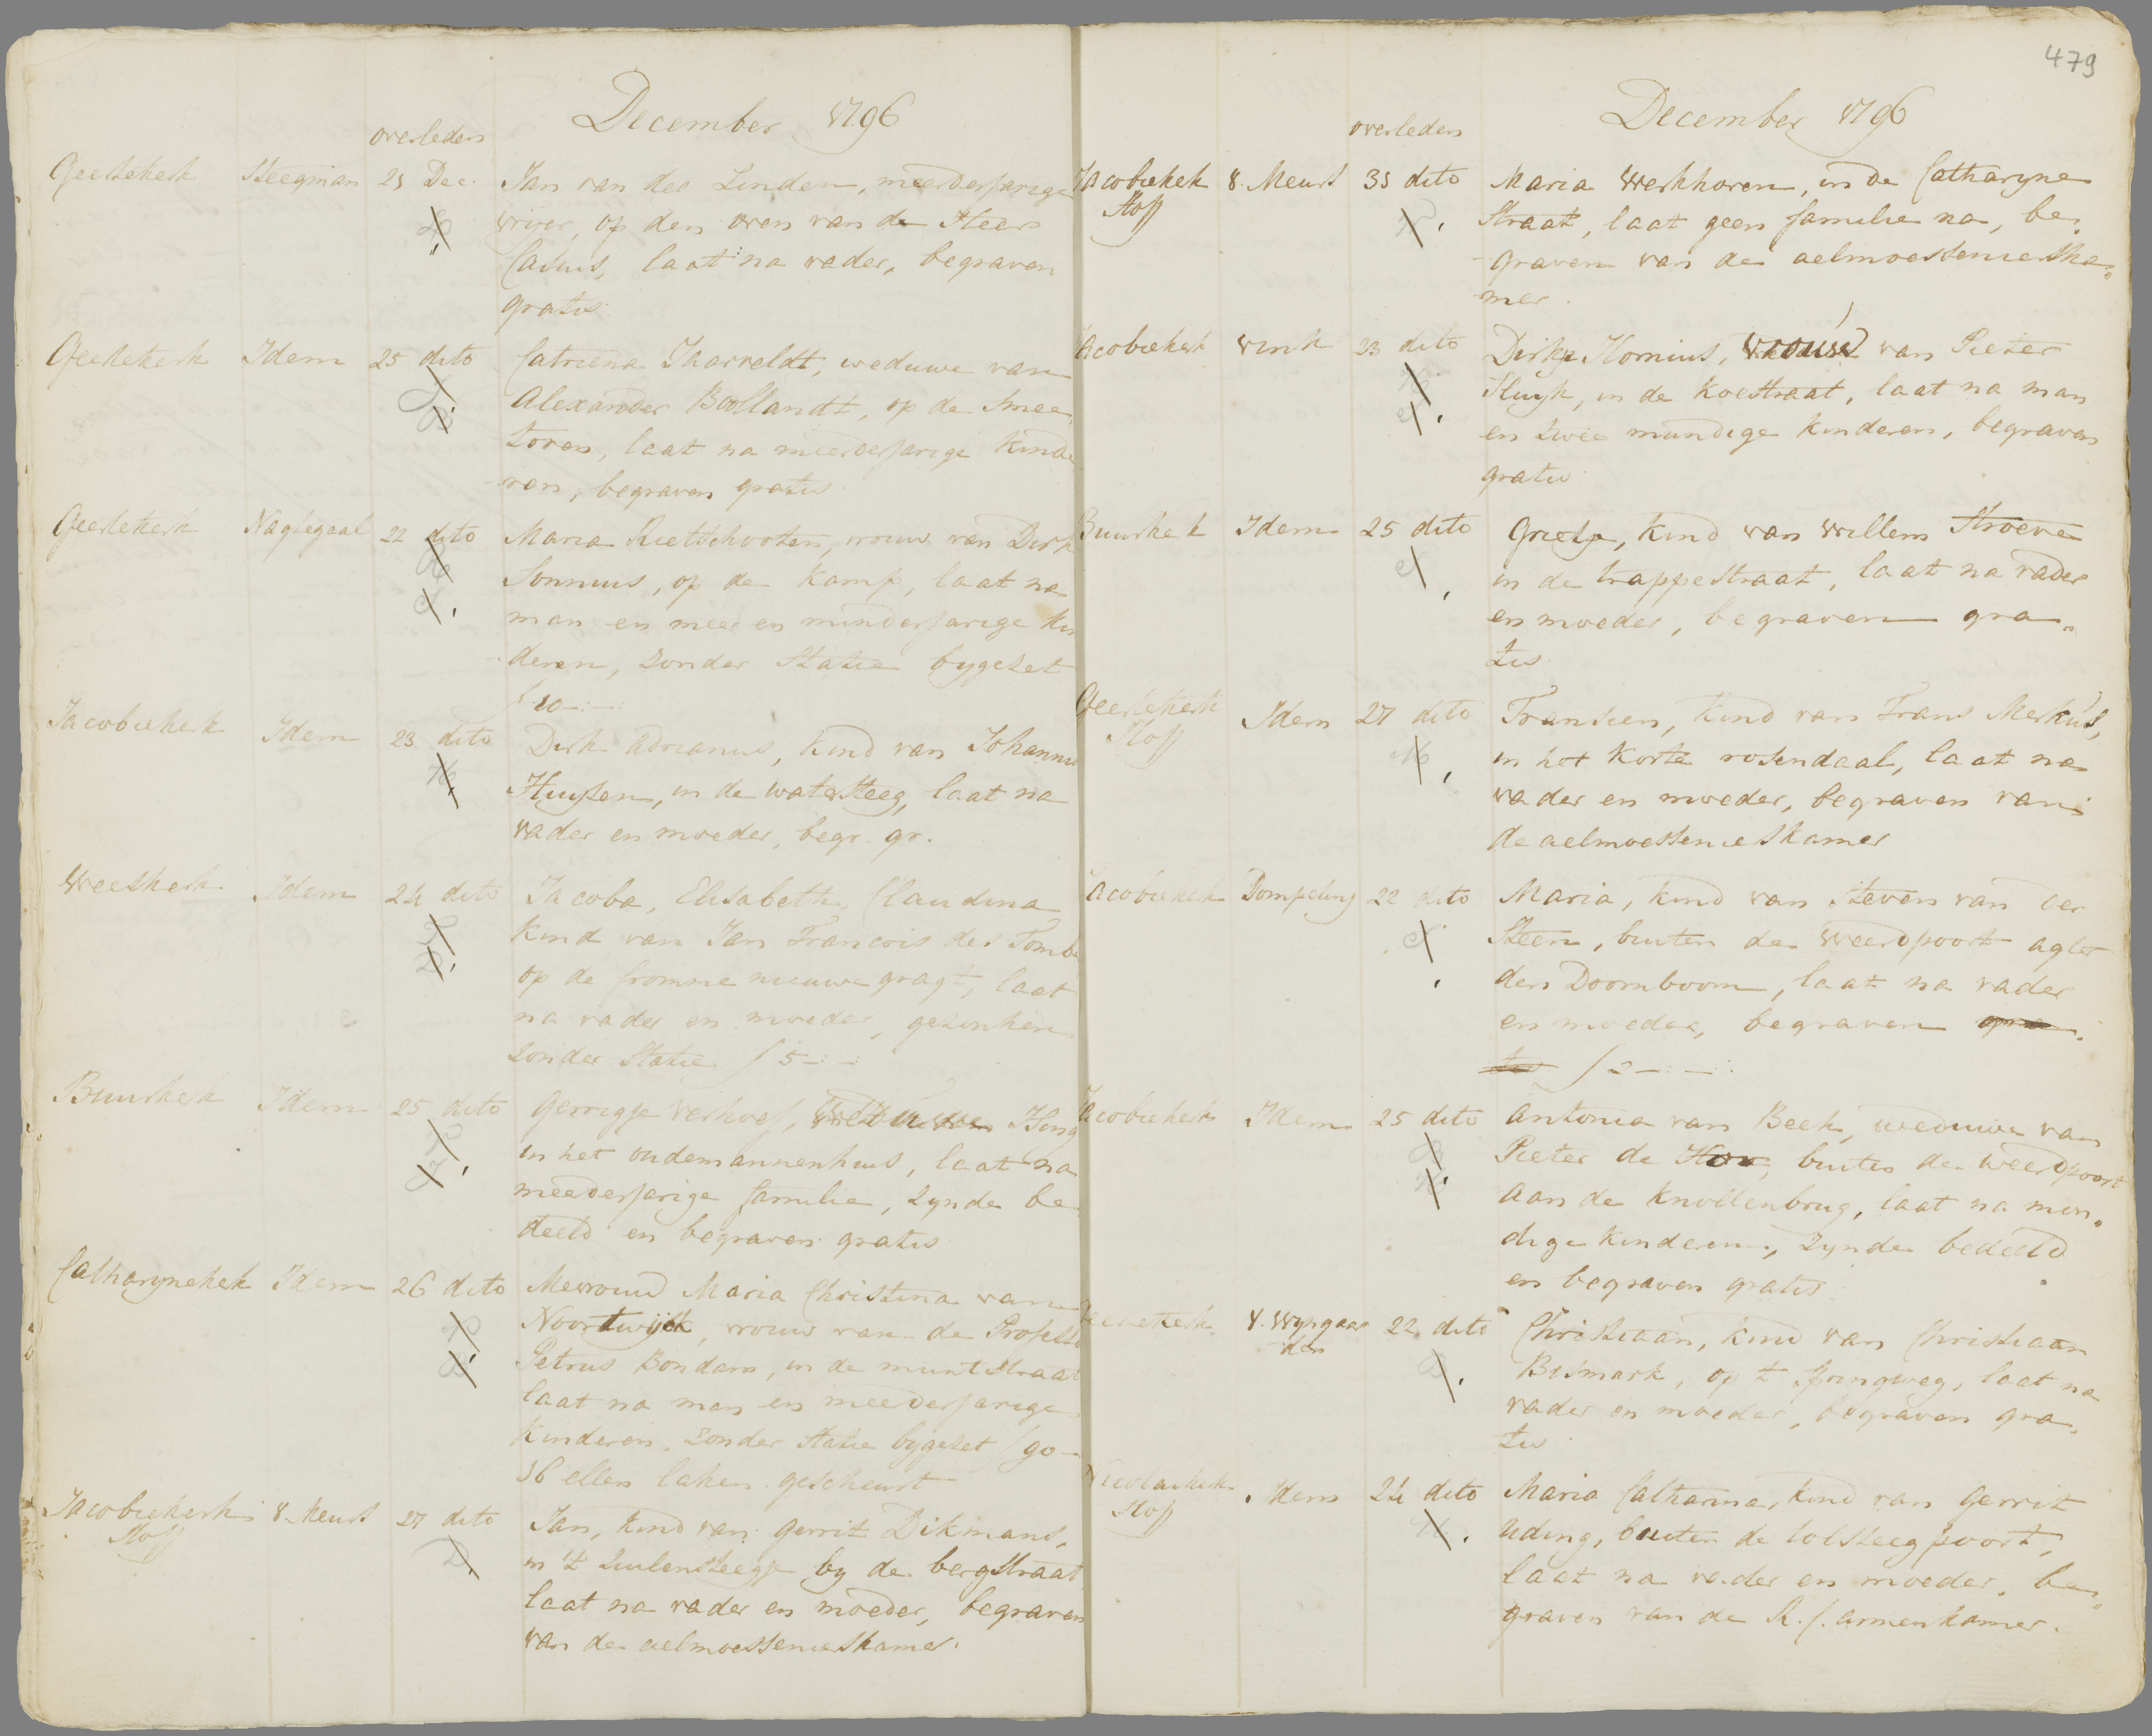 December 1796
overleden
Geertekerk Steegman 21 Dec. Jan van der Linden, meerderjarige
vrijer, op den oven van de Heer
Casius, laat na vader, begraven
gratis
Geertekerk Idem 25 dito Catriena Jaarveldt, weduwe van
Alexander Boollandt, op de Smee
toren, laat na meerderjarige kinde
ren, begraven gratis
Geertekerk Nagtegaal 22 dito Maria Rietschooten, vrouw van Dirk
Sonnius, op de kamp, laat na
man en meer en minderjarige kin
deren, zonder statie bygezet
f 10-:-
Jacobiekerk Idem 23 dito Dirk Adrianus, kind van Johannis
Huysen, in de watersteeg, laat na
vader en moeder, begr. gr.
Weeskerk Idem 24 dito Jacoba, Elisabeth, Claudina
kind van Jan Francois des Tombe
op de cromme nieuwe gragt, laat
na vader en moeder, gezonken
zonder statie f 5-:-
Buurkerk Idem 25 dito Gerrigje Verhoef,
in het oudemannenhuis, laat na
meerderjarige familie, zynde be
deeld en begraven gratis
Catharynekerk Idem 26 dito Mevrouw Maria Christina van
Noortwijck, vrouw van de Professor
Petrus Bondam, in de muntstraat
laat na man en meerderjarige
kinderen, zonder statie bygezet f 90-
16 ellen laken gescheurt
Jacobiekerk v. Meurs 27 dito Jan, kind van Gerrit Dikmans,
Hoff
in 't Zuilensteegje by de bergstraat
laat na vader en moeder, begraven
van de aelmoessenierskamer.
479
December 1796
overleden
Jacobiekerk v. Meurs 31 dito Maria Werkhoven, in de Catharyne
Hoff
straat, laat geen familie na, be,
graven van de aelmoessenierska,,
mer
Jacobiekerk Vink 23 dito Dirkje Homius, vrouw van Pieter
Kluyk, in de koestraat, laat na man
en twee mundige kinderen, begraven
gratis
Buurkerk Idem 25 dito Grietje, kind van Willem Stroeve
in de trappestraat, laat na vader
en moeder, begraven gra,,
tis
Geertekerk Idem 27 dito Fransien, kind van Frans Merkus,
Hoff
in het korte rosendaal, laat na
vader en moeder, begraven van
de aelmoesseniershamer
Jacobiekerk Dompeling 22 dito Maria, kind van Steven van der
Steen, buiten de weerdpoort agter
den Doornboom, laat na vader
en moeder, begraven gra,
tis f 2-:-:
Jacobiekerk Idem 25 dito Antonia van Beek, weduwe van
Pieter de buiten de weerdpoort
aan de knollenbrug, laat na mon,,
dige kinderen, zynde bedeeld
en begraven gratis
Geertekerk v. Wyngaar 22 dito Christiaan, kind van Christiaan
den
Bismark, op 't springweg, laat na
vader en moeder, begraven gra,
tis
Nicolaikerk Idem 24 dito Maria Catharina, kind van Gerrit
Hoff
Uding, buiten de tolsteegpoort,
laat na vader en moeder, be,,
graven van de R. C. armenkamer.